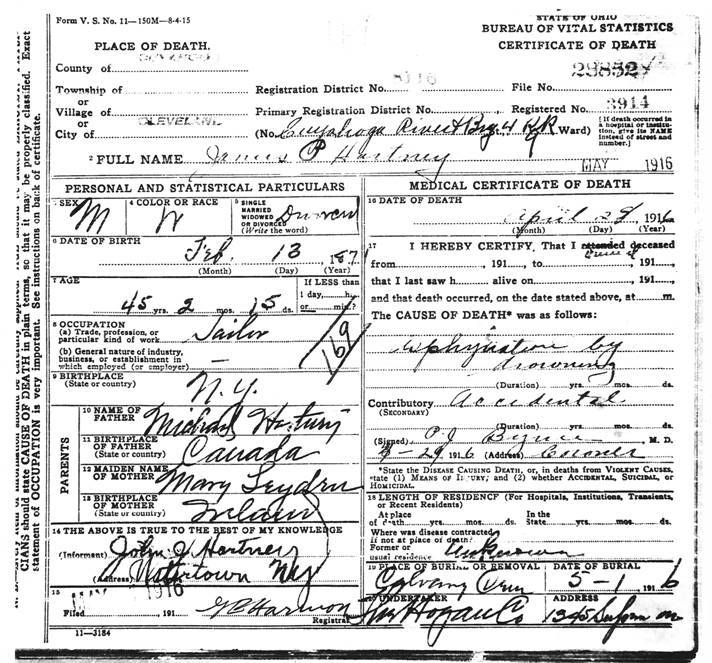 Form V. S. No. 11—150M—8-4-15
STATE OF OHIO
BUREAU OF VITAL STATISTICS
CERTIFICATE OF DEATH
PLACE OF DEATH.
County of
Township of
or
Village of
or
City of CLEVELAND
Registration District No. 8116
File No. 29852
Primary Registration District No.
Registered No. 3914
(No. Cuyahoga River & Brg. 4 Ward)
[If death occurred in a hospital or institution, give its NAME instead of street and number.]
2 FULL NAME James P Hartney
MAY 1916
PERSONAL AND STATISTICAL PARTICULARS
3 SEX M
4 COLOR OR RACE W
5 SINGLE MARRIED WIDOWED OR DIVORCED (Write the word) Divorced
6 DATE OF BIRTH
Feb. 13 187
(Month) (Day) (Year)
7 AGE
If LESS than 1 day, hrs or min.?
45 yrs. 2 mos. 15 ds.
8 OCCUPATION
(a) Trade, profession, or particular kind of work Tailor
(b) General nature of industry, business, or establishment in which employed (or employer) —
169
9 BIRTHPLACE
(State or country) N.Y.
PARENTS
10 NAME OF FATHER Michael Hartney
11 BIRTHPLACE OF FATHER (State or country) Canada
12 MAIDEN NAME OF MOTHER Mary Leyden
13 BIRTHPLACE OF MOTHER (State or country) Ireland
14 THE ABOVE IS TRUE TO THE BEST OF MY KNOWLEDGE
(Informant) John J Hartney
(Address) Watertown NY
15
MAY 1916
Filed, 191 G C Harmon
Registrar
11—3184
MEDICAL CERTIFICATE OF DEATH
16 DATE OF DEATH
April 29 1916
(Month) (Day) (Year)
17 I HEREBY CERTIFY, That I attended deceased
from, 191, to, 191,
that I last saw h alive on, 191,
and that death occurred, on the date stated above, at m.
The CAUSE OF DEATH* was as follows:
Asphyxiation by
drowning
(Duration) yrs. mos. ds.
Contributory Accidental
(SECONDARY)
(Duration) yrs. mos. ds.
(Signed) P J Byrne, M. D.
29 1916 (Address) Coroner
*State the DISEASE CAUSING DEATH, or, in deaths from VIOLENT CAUSES, state (1) MEANS OF INJURY; and (2) whether ACCIDENTAL, SUICIDAL, or HOMICIDAL.
18 LENGTH OF RESIDENCE (For Hospitals, Institutions, Transients, or Recent Residents)
At place of death yrs. mos. ds. In the State yrs. mos. ds.
Where was disease contracted
if not at place of death?
Former or
usual residence Unknown
19 PLACE OF BURIAL OR REMOVAL
Calvary Cem
DATE OF BURIAL
5-1 1916
20 UNDERTAKER
Hogan Co
ADDRESS
1345 Superior
CIANS should state CAUSE OF DEATH in plain terms, so that it may be properly classified. Exact
statement of OCCUPATION is very important. See instructions on back of certificate.